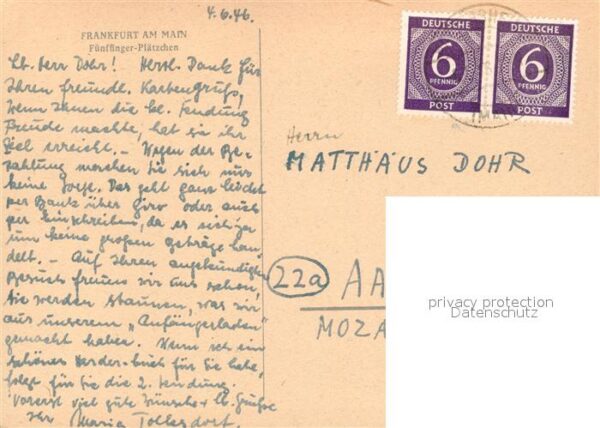 4.6.46.
FRANKFURT AM MAIN
Fünffinger-Plätzchen
Lb. Herr Dohr! Herzl. Dank für
Ihren freundl. Kartengruß,
wenn Ihnen die lb. Sendung
Freude machte, hat sie ihr
Ziel erreicht. – Wegen der Be-
zahlung machen Sie sich nur
keine Sorge. Das geht ganz leicht
per Bank über Giro oder auch
per Einschreiben, da es sich ja
um keine großen Beträge han-
delt. – Auf Ihren angekündigten
Besuch freuen wir uns schon,
Sie werden staunen, was wir
aus unserem „Anfängerladen"
gemacht haben. Wenn ich ein
schönes Herder-buch für Sie habe,
folgt für Sie die 2. Sendung.
Vorerst viel gute Wünsche + lb. Grüße
Ihr Maria Tollersdorf.
DEUTSCHE
6
PFENNIG
POST
DEUTSCHE
6
PFENNIG
POST
Herrn
MATTHÄUS DOHR
22a AA
MOZA
privacy protection
Datenschutz